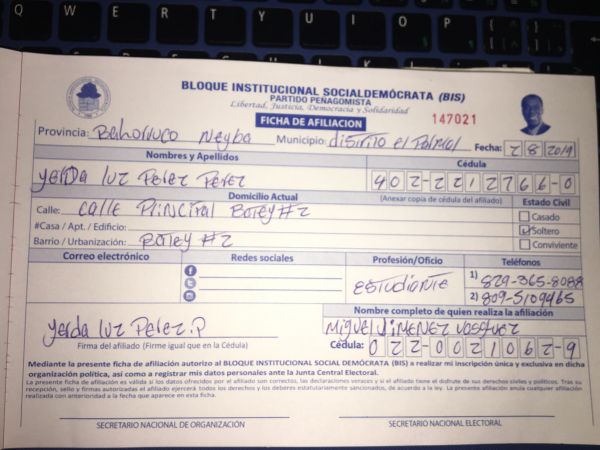 BLOQUE INSTITUCIONAL SOCIALDEMÓCRATA (BIS)
PARTIDO PEÑAGOMISTA
Libertad, Justicia, Democracia y Solidaridad
FICHA DE AFILIACION
147021
Provincia: Bahoruco Neyba Municipio: distrito el Palmal Fecha: 7 8 2019
Nombres y Apellidos Cédula
Yerda Luz Perez Perez 402-2212766-0
Domicilio Actual (Anexar copia de cédula del afiliado) Estado Civil
Calle: Calle Principal Batey #2 Casado
#Casa / Apt. / Edificio: Soltero
Barrio / Urbanización: Batey #2 Conviviente
Correo electrónico Redes sociales Profesión/Oficio Teléfonos
Estudiante 1) 829-365-8088
2) 809-5109465
Nombre completo de quien realiza la afiliación
Yerda Luz Perez.P Miguel Jimenez Vasquez
Firma del afiliado (Firme igual que en la Cédula) Cédula: 022-0021062-9
Mediante la presente ficha de afiliación autorizo al BLOQUE INSTITUCIONAL SOCIAL DEMÓCRATA (BIS) a realizar mi inscripción única y exclusiva en dicha
organización política, así como a registrar mis datos personales ante la Junta Central Electoral.
La presente ficha de afiliación es válida si los datos ofrecidos por el afiliado son correctos, las declaraciones veraces y si el afiliado tiene el disfrute de sus derechos civiles y políticos. Tras su
recepción, sello y firmas autorizadas el afiliado ejercerá todos los derechos y los deberes estatutariamente sancionados, de acuerdo a la ley. La presente afiliación anula cualquier afiliación
realizada con anterioridad a la fecha que aparece en esta ficha.
SECRETARIO NACIONAL DE ORGANIZACIÓN SECRETARIO NACIONAL ELECTORAL